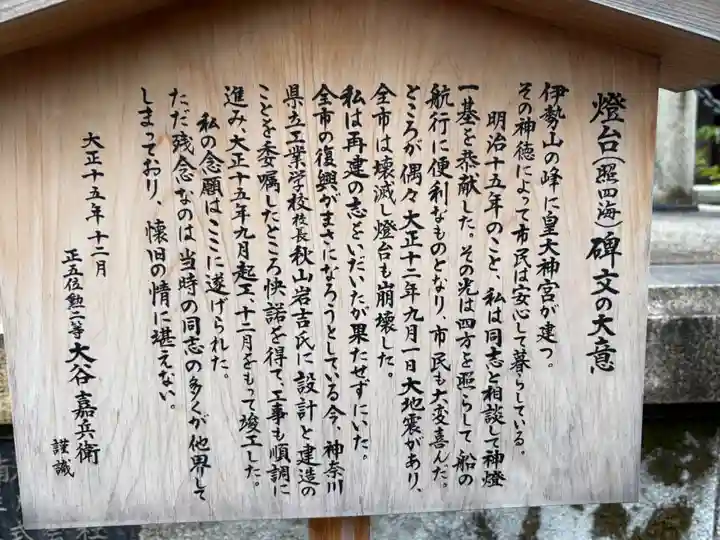 燈台(照四海)碑文の大意
伊勢山の峰に皇大神宮が建つ。
その神徳によって市民は安心して暮らしている。
明治十五年のこと、私は同志と相談して神燈
一基を恭献した。その光は四方を照らして船の
航行に便利なものとなり、市民も大変喜んだ。
ところが偶々大正十二年九月一日大地震があり、
全市は壊滅し燈台も崩壊した。
私は再建の志をいだいたが果たせずにいた。
全市の復興がまさになろうとしている今、神奈川
県立工業学校校長秋山岩吉氏に設計と建造の
ことを委嘱したところ快諾を得て、工事も順調に
進み、大正十五年九月起工、十二月をもって竣工した。
私の念願はここに遂げられた。
ただ残念なのは当時の同志の多くが他界して
しまっており、懐旧の情に堪えない。
大正十五年十二月
正五位勲二等 大谷嘉兵衛 謹識